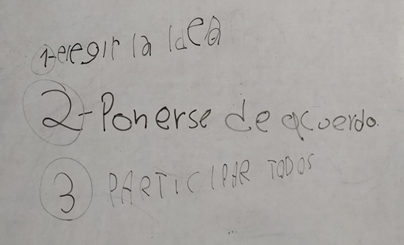 1-elegir la IdeA
2-Ponerse de acuerdo.
3 PARTICIPAR TODOS